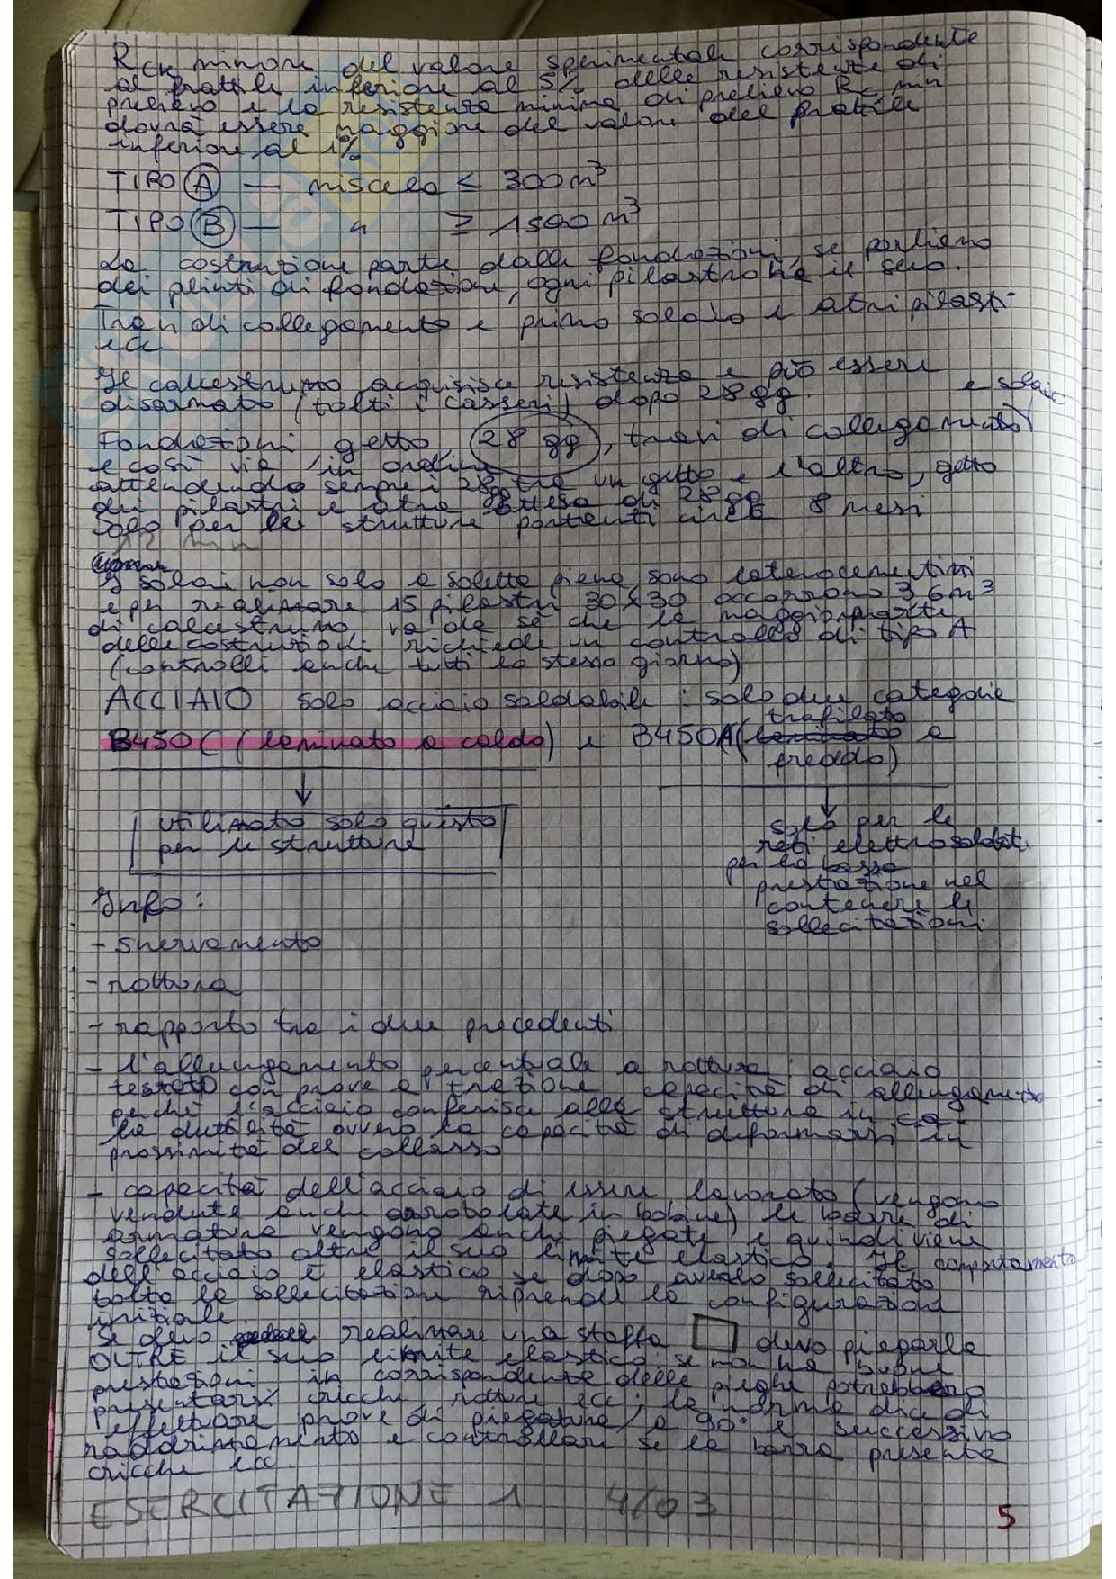 Rck minore del valore sperimentale corrispondente
al frattile inferiore al 5% delle resistenze di
prelievo e la resistenza minima di prelievo Rc min
dovrà essere maggiore del valore del frattile
inferiore al 1%
TIPO A — miscela ≤ 300 m³
TIPO B — " ≥ 1500 m³
La costruzione parte dalle fondazioni, se parliamo
dei plinti di fondazione, ogni pilastro ha il suo.
Travi di collegamento e primo solaio e altri pilastri
ecc
Il calcestruzzo acquisisce resistenza e può essere
disarmato (tolti i casseri) dopo 28 gg.
e solaio
Fondazioni getto, 28 gg, travi di collegamento
e così via, in ordine
attendendo sempre i 28gg tra un getto e l'altro, getto
dei pilastri e altra attesa di 28gg
Solo per le strutture portanti circa 8 mesi
I solai non solo a soletta piena, sono laterocementizi
e per realizzare 15 pilastri 30x30 occorrono 36m³
di calcestruzzo, va da sé che la maggior parte
delle costruzioni richiede un controllo di tipo A
(controlli anche tutti lo stesso giorno)
ACCIAIO solo acciaio saldabile: solo due categorie
B450C (laminato a caldo) e B450A (trafilato a
freddo)
utilizzato solo questo
per le strutture
solo per le
reti elettrosaldate
per la bassa
prestazione nel
contenere le
sollecitazioni
Info:
- snervamento
- rottura
- rapporto tra i due precedenti
- l'allungamento percentuale a rottura: acciaio
testato con prove a trazione capacità di allungamento
perché l'acciaio conferisce alla struttura in ca
la duttilità ovvero la capacità di deformarsi in
prossimità del collasso
- capacità dell'acciaio di essere lavorato (vengono
vendute anche arrotolate in bobine) le barre di
armatura vengono anche piegate e quindi viene
sollecitato oltre il suo limite elastico. Il comportamento
dell'acciaio è elastico se dopo averlo sollecitato
tolta la sollecitazione riprende la configurazione
iniziale
Se devo realizzare una staffa devo piegarla
OLTRE il suo limite elastico, se non ha buone
prestazioni in corrispondenza delle pieghe potrebbero
presentarsi cricche, rotture ecc; la norma dice di
effettuare prove di piegatura a 90° e successivo
raddrizzamento e controllare se la barra presenta
cricche ecc
ESERCITAZIONE 1 4/03
5